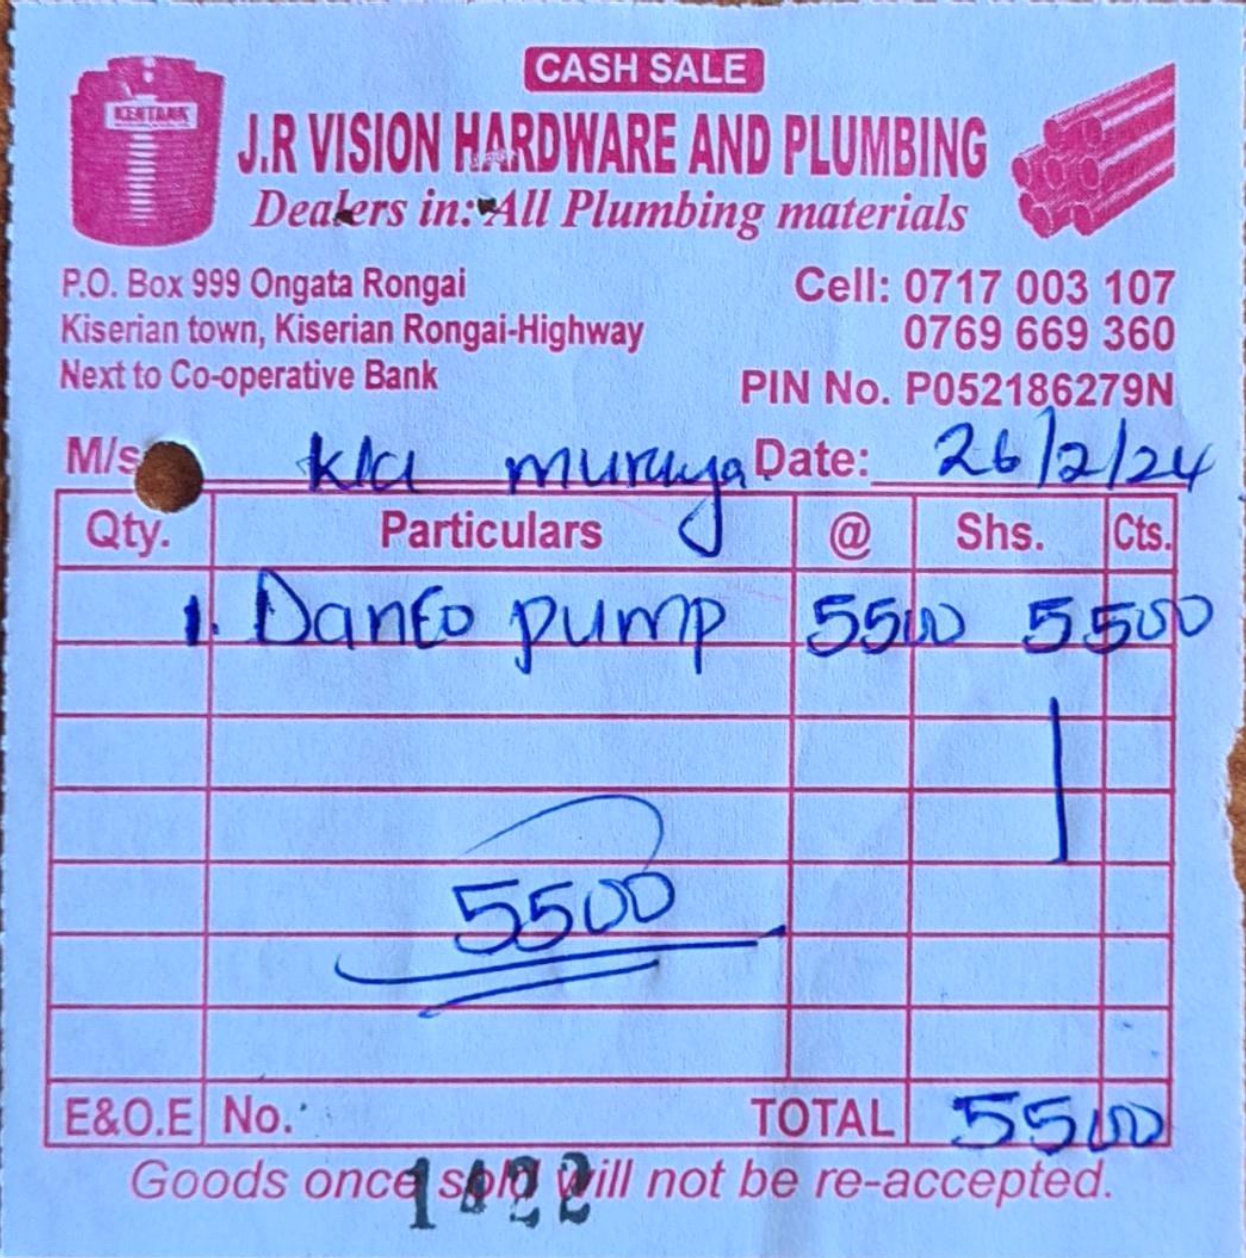 CASH SALE
KENTANK
J.R VISION HARDWARE AND PLUMBING
Dealers in: All Plumbing materials
P.O. Box 999 Ongata Rongai
Cell: 0717 003 107
Kiserian town, Kiserian Rongai-Highway
0769 669 360
Next to Co-operative Bank
PIN No. P052186279N
M/s muraya Date: 26/2/24
Qty. Particulars @ Shs. Cts.
1. pump 5500 5500
5500
E&O.E No. TOTAL 5500
Goods once sold will not be re-accepted.